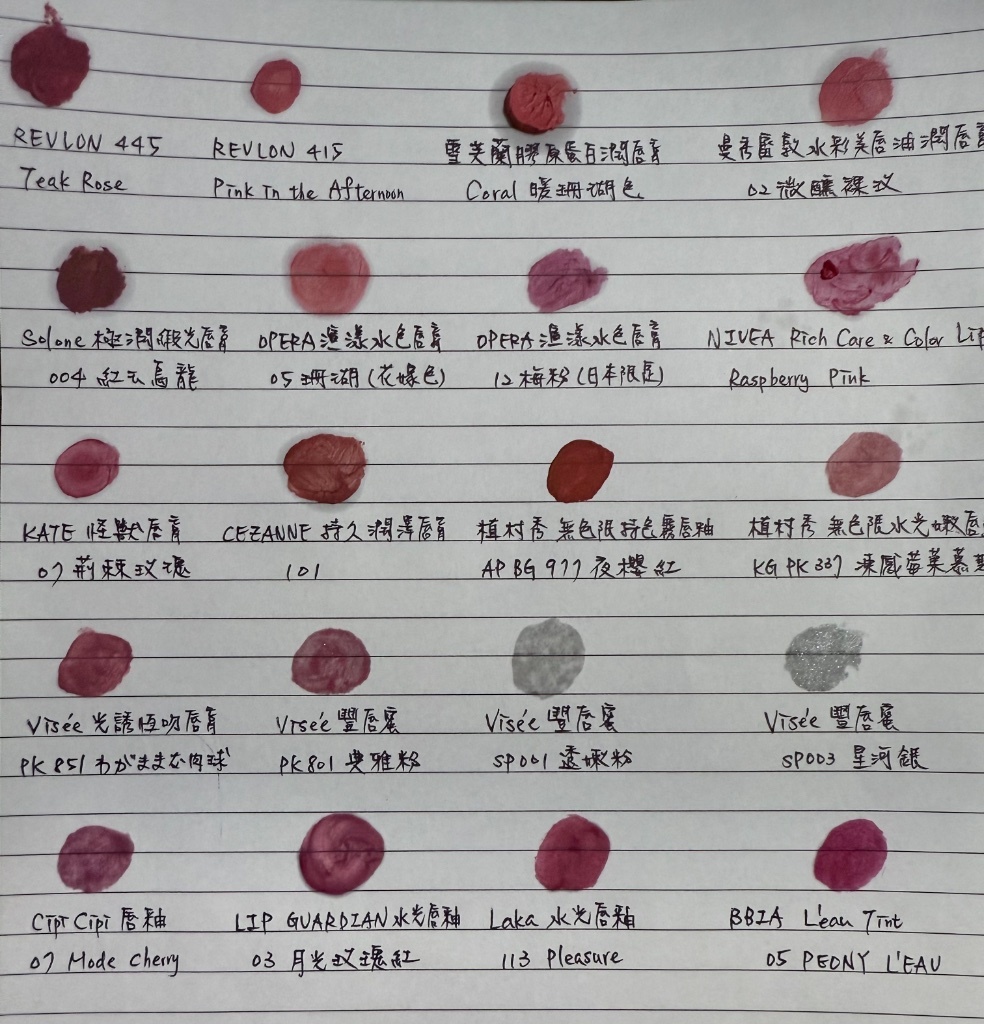 REVLON 445 REVLON 415 雪芙蘭膠原蛋白潤唇膏 曼秀雷敦水彩美唇油潤唇膏
Teak Rose Pink in the Afternoon Coral 暖珊瑚色 02 微醺裸玫
Solone 極潤緞光唇膏 OPERA 漣漾水色唇膏 OPERA 漣漾水色唇膏 NIVEA Rich Care & Color Lip
004 紅玉烏龍 05 珊瑚 (花嫁色) 12 梅粉 (日本限定) Raspberry Pink
KATE 怪獸唇膏 CEZANNE 持久潤澤唇膏 植村秀 無色限持色霧唇釉 植村秀 無色限水光緻唇
07 荊棘玫瑰 101 AP BG 977 夜櫻紅 KG PK 337 凍感莓果慕
Visée 光誘恆吻唇膏 Visée 豐唇蜜 Visée 豐唇蜜 Visée 豐唇蜜
PK 851 わがままな肉球 PK801 典雅粉 SP001 透嫩粉 SP003 星河銀
Cipi Cipi 唇釉 LIP GUARDIAN 水光唇釉 Laka 水光唇釉 BBIA L'eau Tint
07 Mode Cherry 03 月光玫瑰紅 113 Pleasure 05 PEONY L'EAU